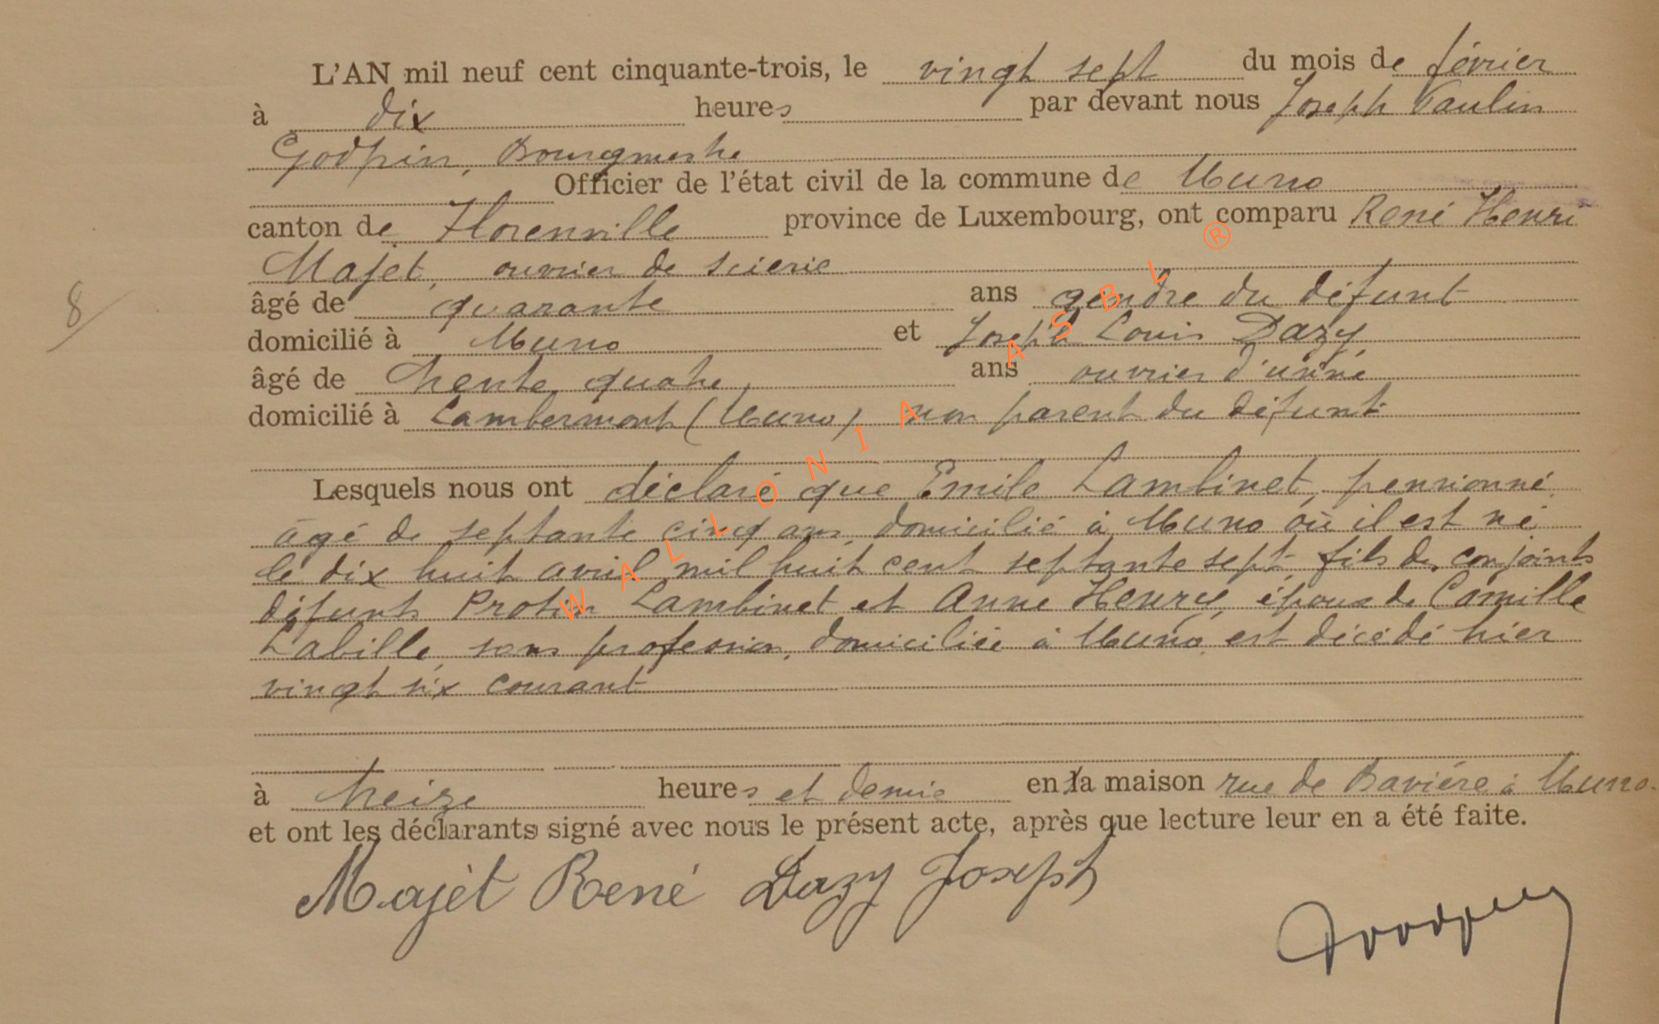 L'AN mil neuf cent cinquante-trois, le vingt sept du mois de février
à dix heures par devant nous Joseph Paulin
Godfrin, Bourgmestre
Officier de l'état civil de la commune de Muno
canton de Florenville province de Luxembourg, ont comparu René Henri
Majet, ouvrier de scierie
âgé de quarante ans gendre du défunt
domicilié à Muno et Joseph Louis Dazy
âgé de trente quatre ans ouvrier d'usine
domicilié à Lambermont (Muno) non parent du défunt
Lesquels nous ont déclaré que Emile Lambinet, pensionné,
âgé de septante cinq ans, domicilié à Muno où il est né
le dix huit avril mil huit cent septante sept fils des conjoints
défunts Protin Lambinet et Anne Henry, époux de Camille
Labille, sans profession, domiciliée à Muno, est décédé hier
vingt six courant
à treize heures et demie en la maison rue de Bavière à Muno.
et ont les déclarants signé avec nous le présent acte, après que lecture leur en a été faite.
Majèt René Dazy Joseph
8
WALLONIA ASBL ®